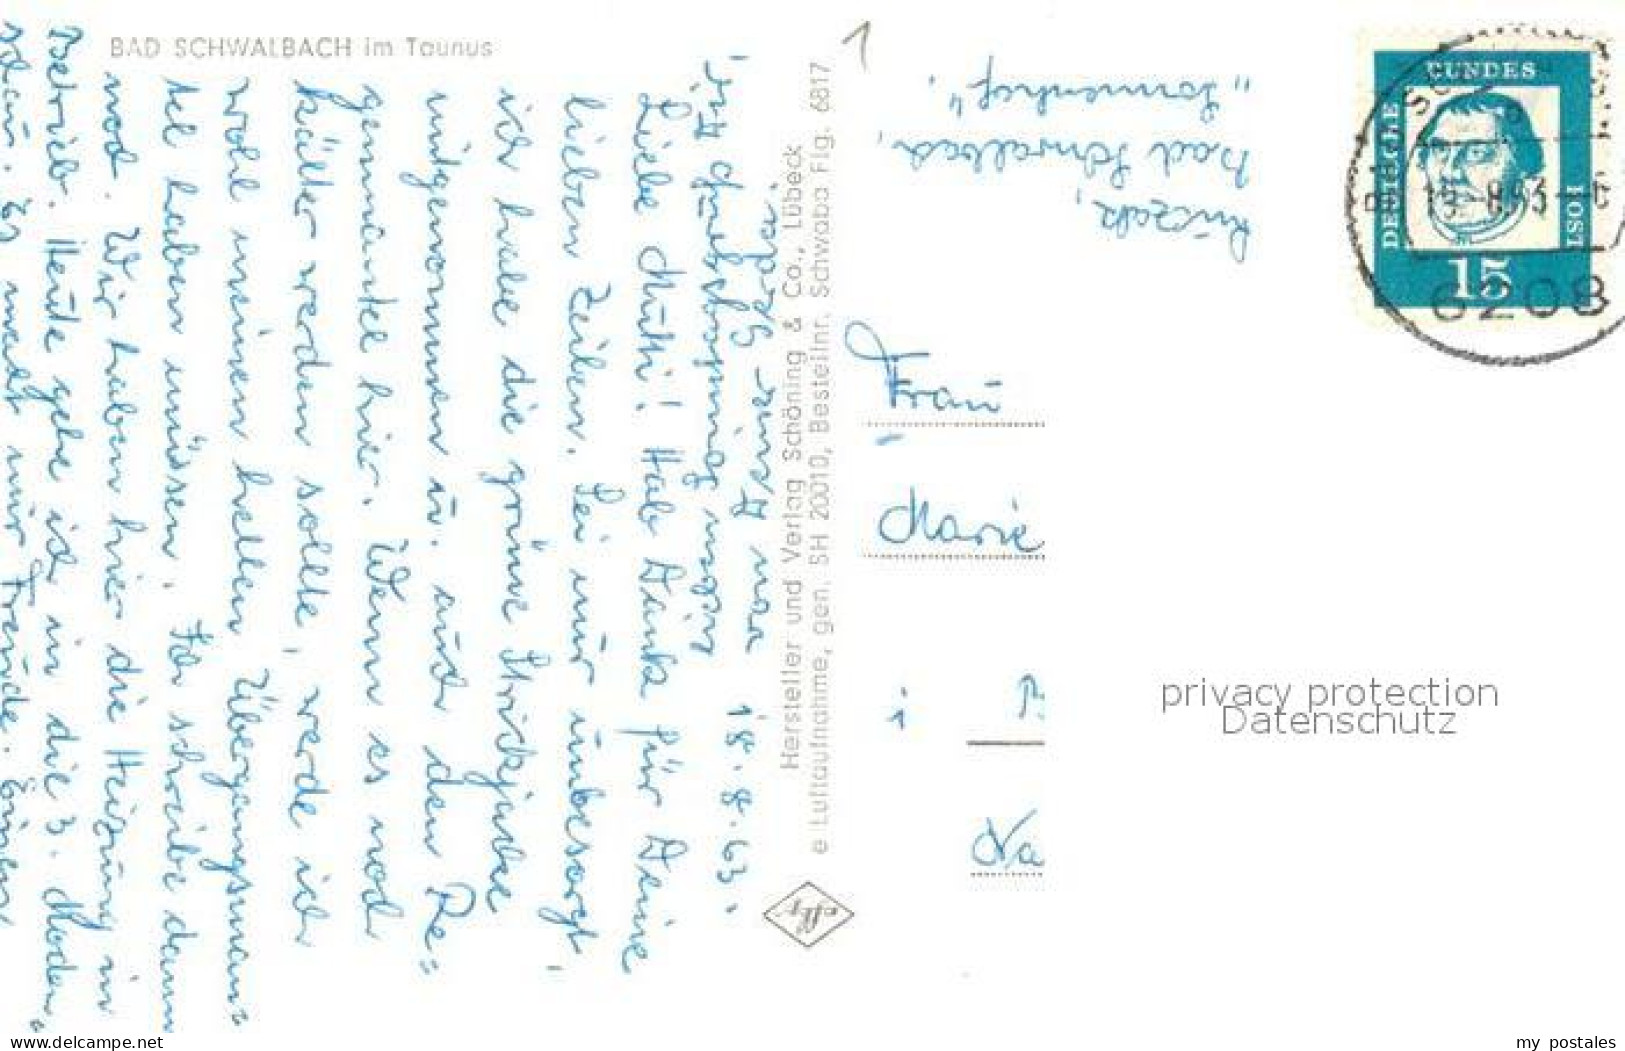 BAD SCHWALBACH im Taunus
18.8.63.
Liebe Mutti! Hab Dank für Deine
lieben Zeilen. Sei nur unbesorgt,
ich habe die grüne Strickjacke
mitgenommen u. auch den Re=
genmantel hier. Wenn es noch
kälter werden sollte, werde ich
wohl meinen hellen Übergangsman=
tel haben müssen. Ich schreibe dann
noch. Wir haben hier die Heizung in
Betrieb. Heute gehe ich in die 3. Moden=
schau. Es macht mir Freude. Einen
Hersteller und Verlag Schöning & Co., Lübeck
e Luftaufnahme, gen. SH 20010, Bestellnr. Schwaba Flg. 6817
1
Bad Schwalbach,
„Sonnenhof".
DEUTSCHE
BUNDES
POST
15
6208
Frau
Marie
i. P.
Na
privacy protection
Datenschutz
www.delcampe.net
my_postales